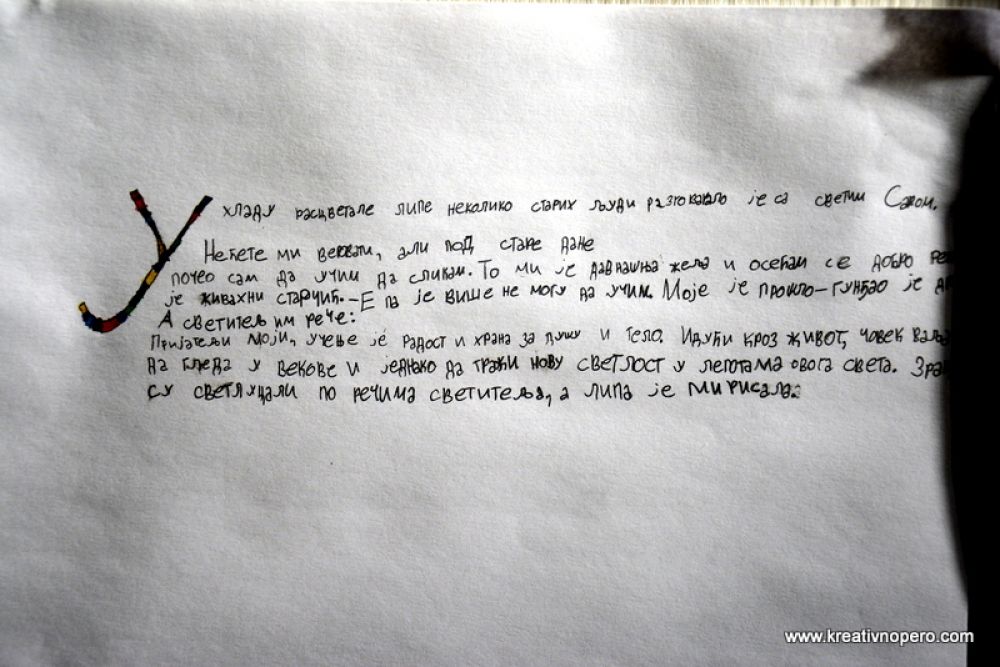 У хладу расцветале липе неколико старих људи разговарало је са светим Савом.
Нећете ми веровати, али под старе дане
почео сам да учим да сликам. То ми је давнашња жеља и осећам се добро
је живахни старчић. – Е па је више не могу да учим. Моје је прошло – гунђао је
А светитељ им рече:
Пријатељи моји, учење је радост и храна за душу и тело. Идући кроз живот, човек ваља
да гледа у векове и једнако да тражи нову светлост у лепотама овога света.
су светлуцали по речима светитеља, а липа је мирисала.
www.kreativnopero.com